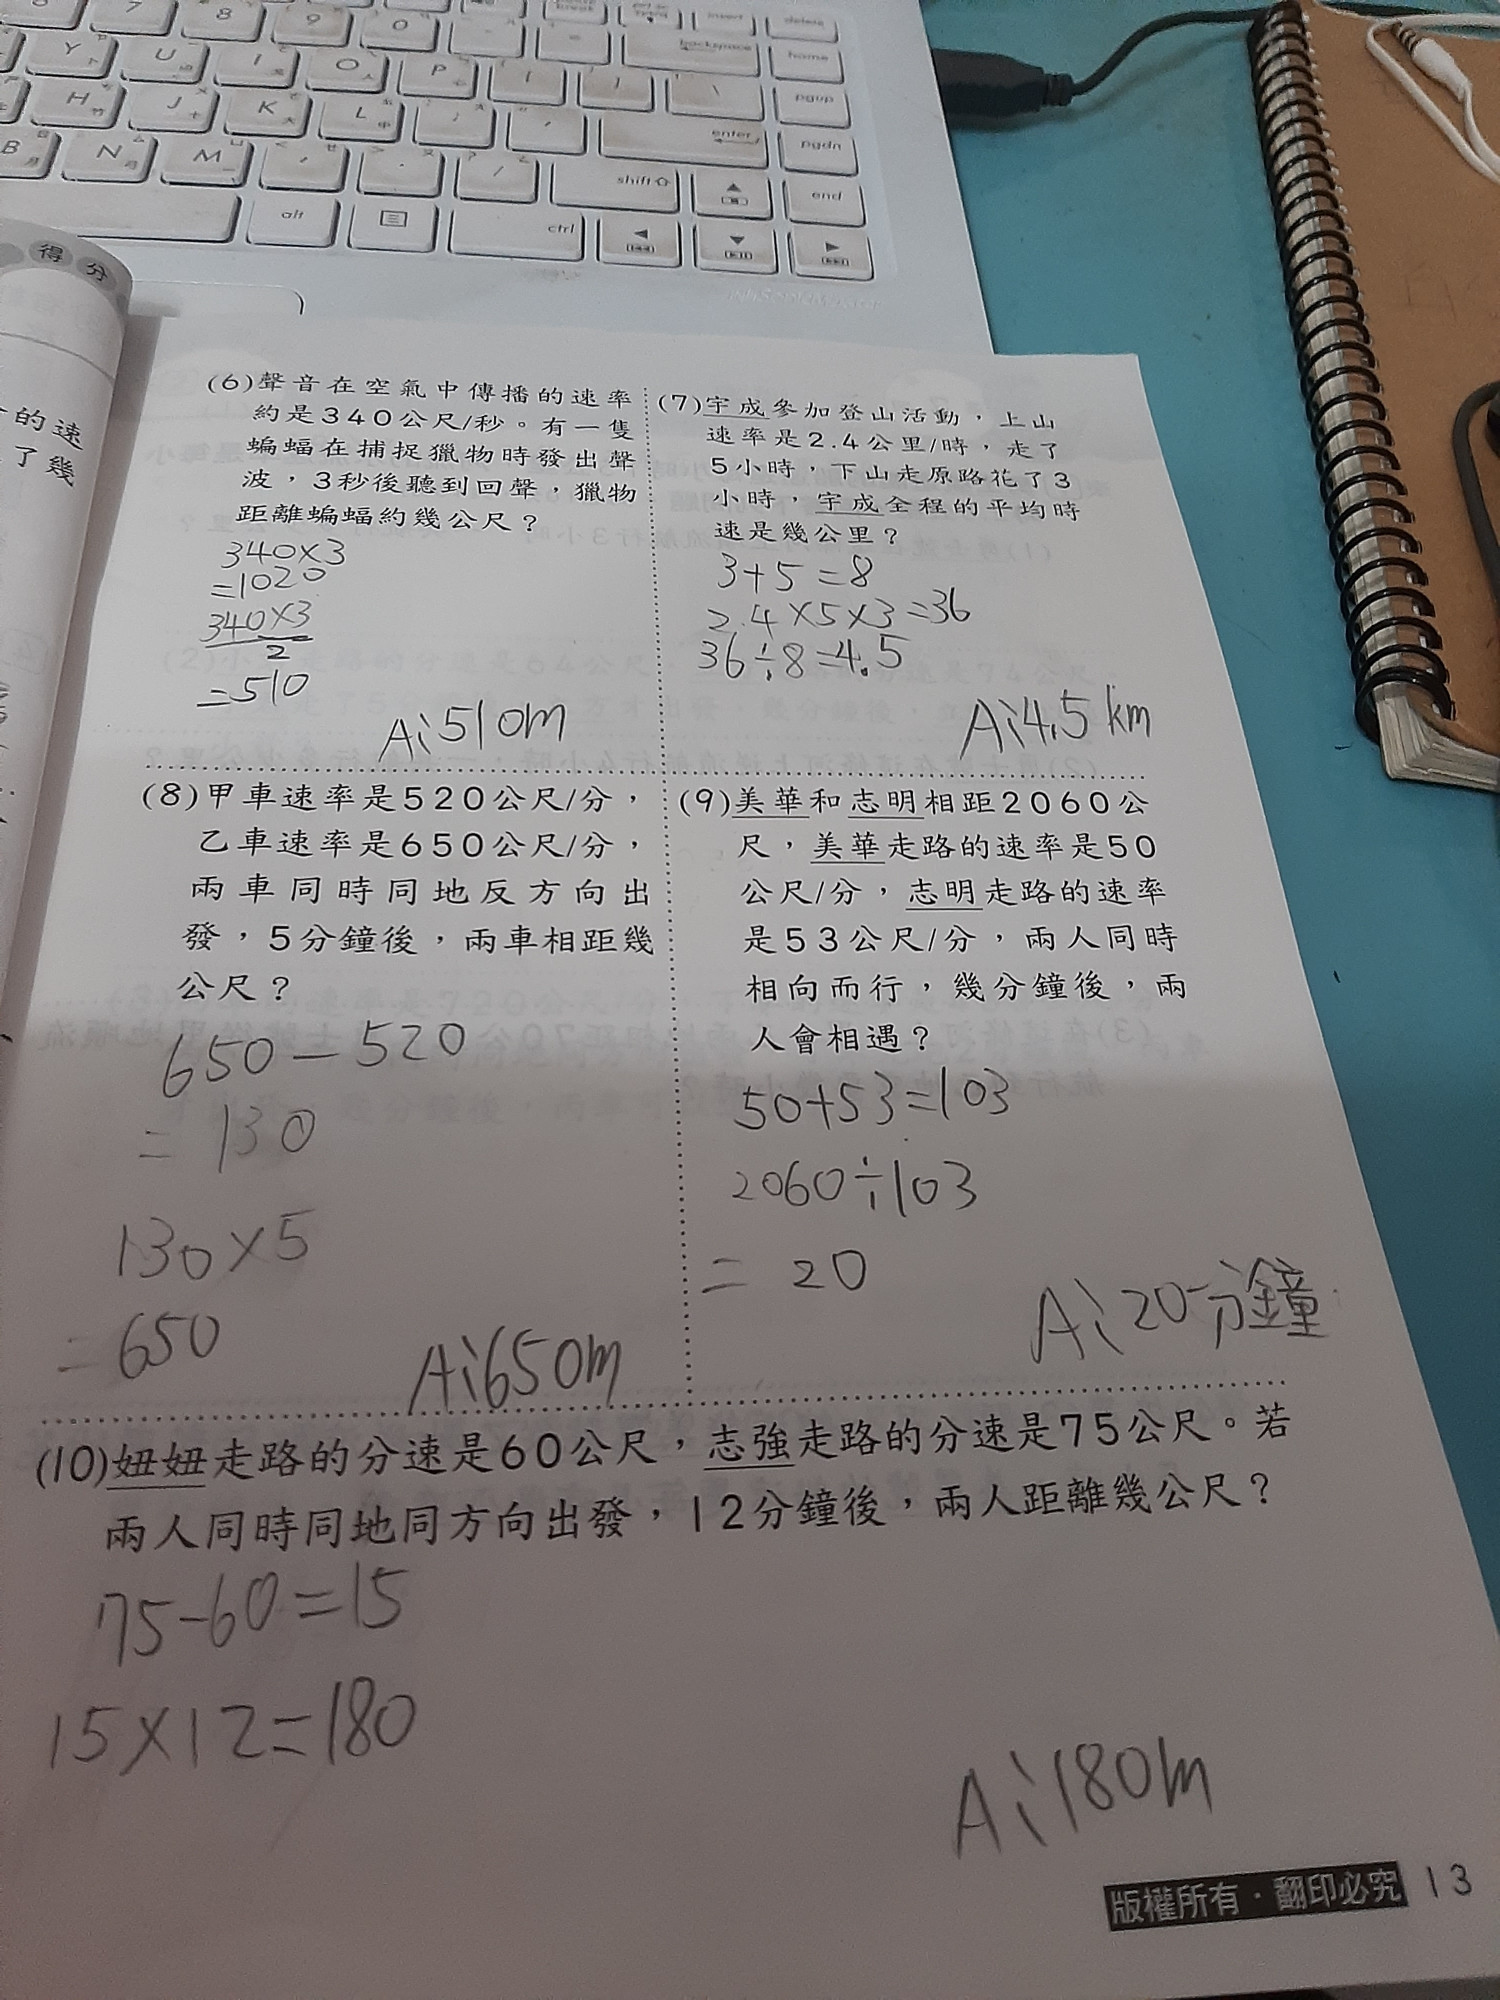 7
8
9
0
backspace
insert
delete
home
Y
U
I
O
P
pgup
H
J
K
L
enter
pgdn
B
N
M
shift
end
alt
ctrl
得分
的速
了幾
(6)聲音在空氣中傳播的速率
約是340公尺/秒。有一隻
蝙蝠在捕捉獵物時發出聲
波，3秒後聽到回聲，獵物
距離蝙蝠約幾公尺？
340×3
=1020
340×3
2
=510
A:510m
(7)宇成參加登山活動，上山
速率是2.4公里/時，走了
5小時，下山走原路花了3
小時，宇成全程的平均時
速是幾公里？
3+5=8
2.4×5×3=36
36÷8=4.5
A:4.5km
(8)甲車速率是520公尺/分，
乙車速率是650公尺/分，
兩車同時同地反方向出
發，5分鐘後，兩車相距幾
公尺？
650-520
=130
130×5
=650
A:650m
(9)美華和志明相距2060公
尺，美華走路的速率是50
公尺/分，志明走路的速率
是53公尺/分，兩人同時
相向而行，幾分鐘後，兩
人會相遇？
50+53=103
2060÷103
=20
A:20分鐘
(10)妞妞走路的分速是60公尺，志強走路的分速是75公尺。若
兩人同時同地同方向出發，12分鐘後，兩人距離幾公尺？
75-60=15
15×12=180
A:180m
版權所有·翻印必究 13